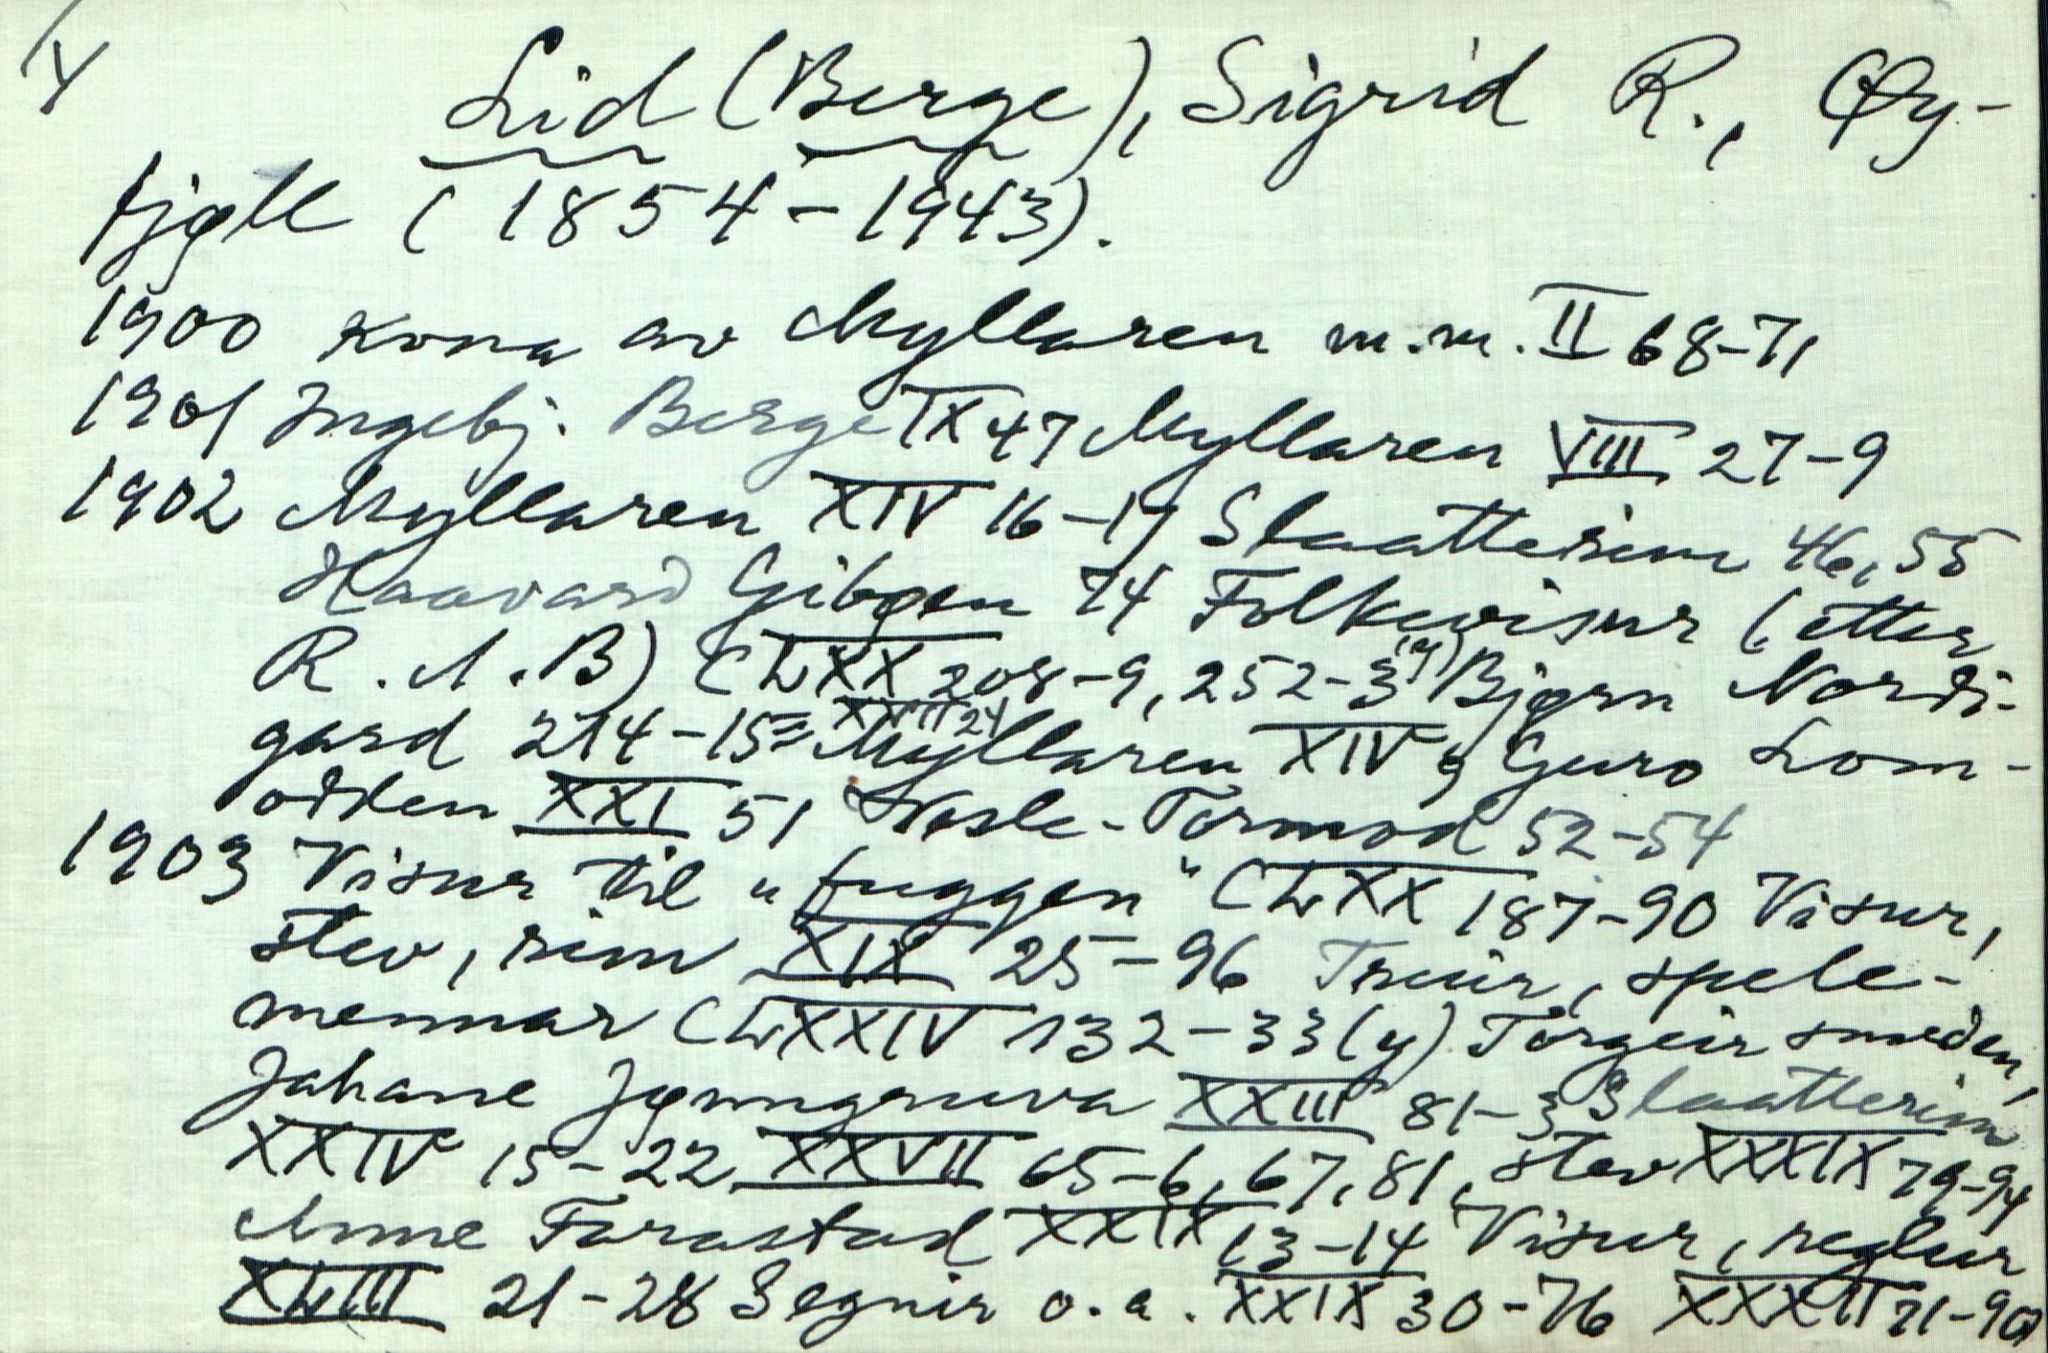 Y
Lid (Berge), Sigrid R., Øy-
fjøll (1854-1943).
1900 Kona av Myllaren m.m. II 68-71
1901 Ingebj. Berge IX 47 Myllaren VIII 27-9
1902 Myllaren XIV 16-17 Slaatterim 46, 55
Haavard Gibøen 74 Folkevisur (etter
R. A. B) CLXX 208-9, 252-3(y) Bjørn Nordi-
gard 214-15= XXVII 24 Myllaren XIV 9 Guro Lom-
odden XXI 51 Vesle-Tormod 52-54
1903 Visur til "fuggen" CLXX 187-90 Visur,
stev, rim XIX 25-96 Truir, spele-
mennar CLXXIV 132-33(y) Torgeir smeden,
Jahane Jønngruva XXIII 81-3 Slaatterim
XXIV 15-22 XXVII 65-6, 67, 81, stev XXXIX 79-94
Anne Forastad XXIX 13-14 Visur, reglur
XLIII 21-28 Segnir o.a. XXIX 30-76 XXXII 71-90